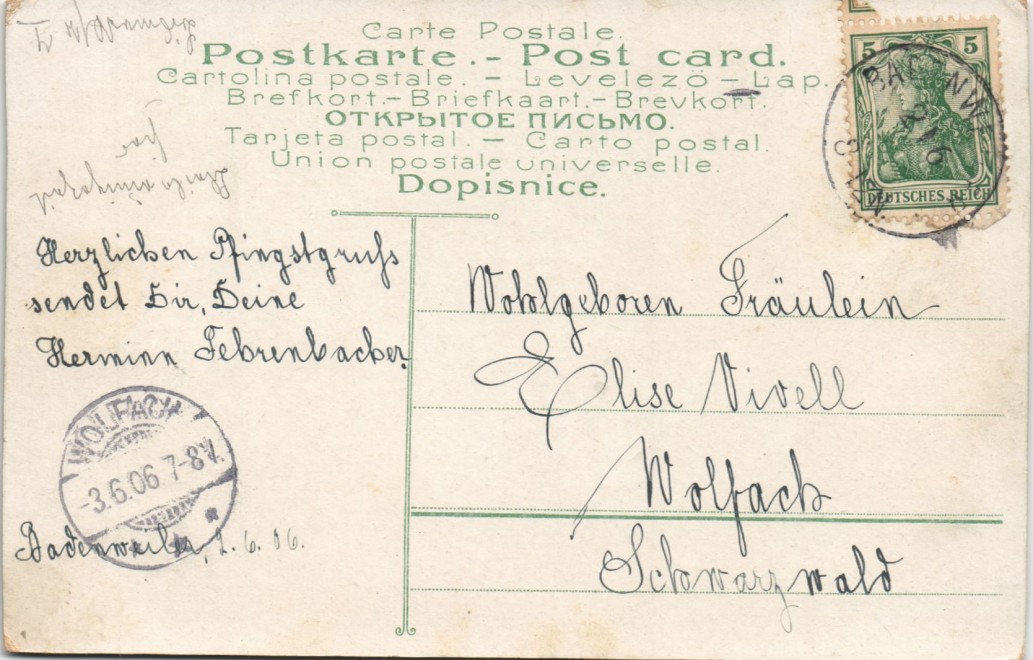 Carte Postale.
Postkarte. - Post card.
Cartolina postale. - Levelezö - Lap.
Brefkort. - Briefkaart. - Brevkort.
ОТКРЫТОЕ ПИСЬМО.
Tarjeta postal. - Carto postal.
Union postale universelle.
Dopisnice.
5 5
DEUTSCHES REICH
Herzlichen Pfingstgruss
sendet Dir, Deine
Hermine Fehrenbacher.
WOLFACH
-3.6.06 7-8V.
Badenweiler, 2.6.06.
Wohlgeboren Fräulein
Elise Vivell
Wolfach
Schwarzwald